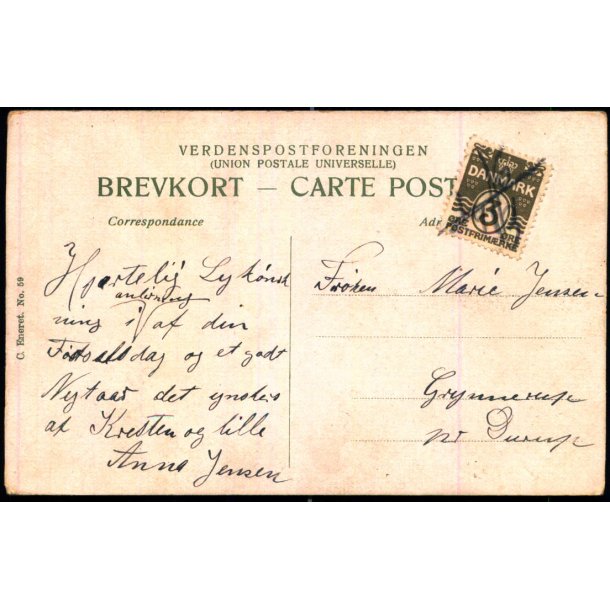 VERDENSPOSTFORENINGEN
(UNION POSTALE UNIVERSELLE)
BREVKORT — CARTE POST
Correspondance
Adr
DANMARK
3
ØRE ØRE
POSTFRIMÆRKE
C. Eneret. No. 59
Hjertelig Lykønsk
ning i anledning af din
Fødselsdag og et godt
Nytaar det ynskes
af Kresten og lille
Anna Jensen
Frøken Marie Jensen
Grynnerup
pr Durup